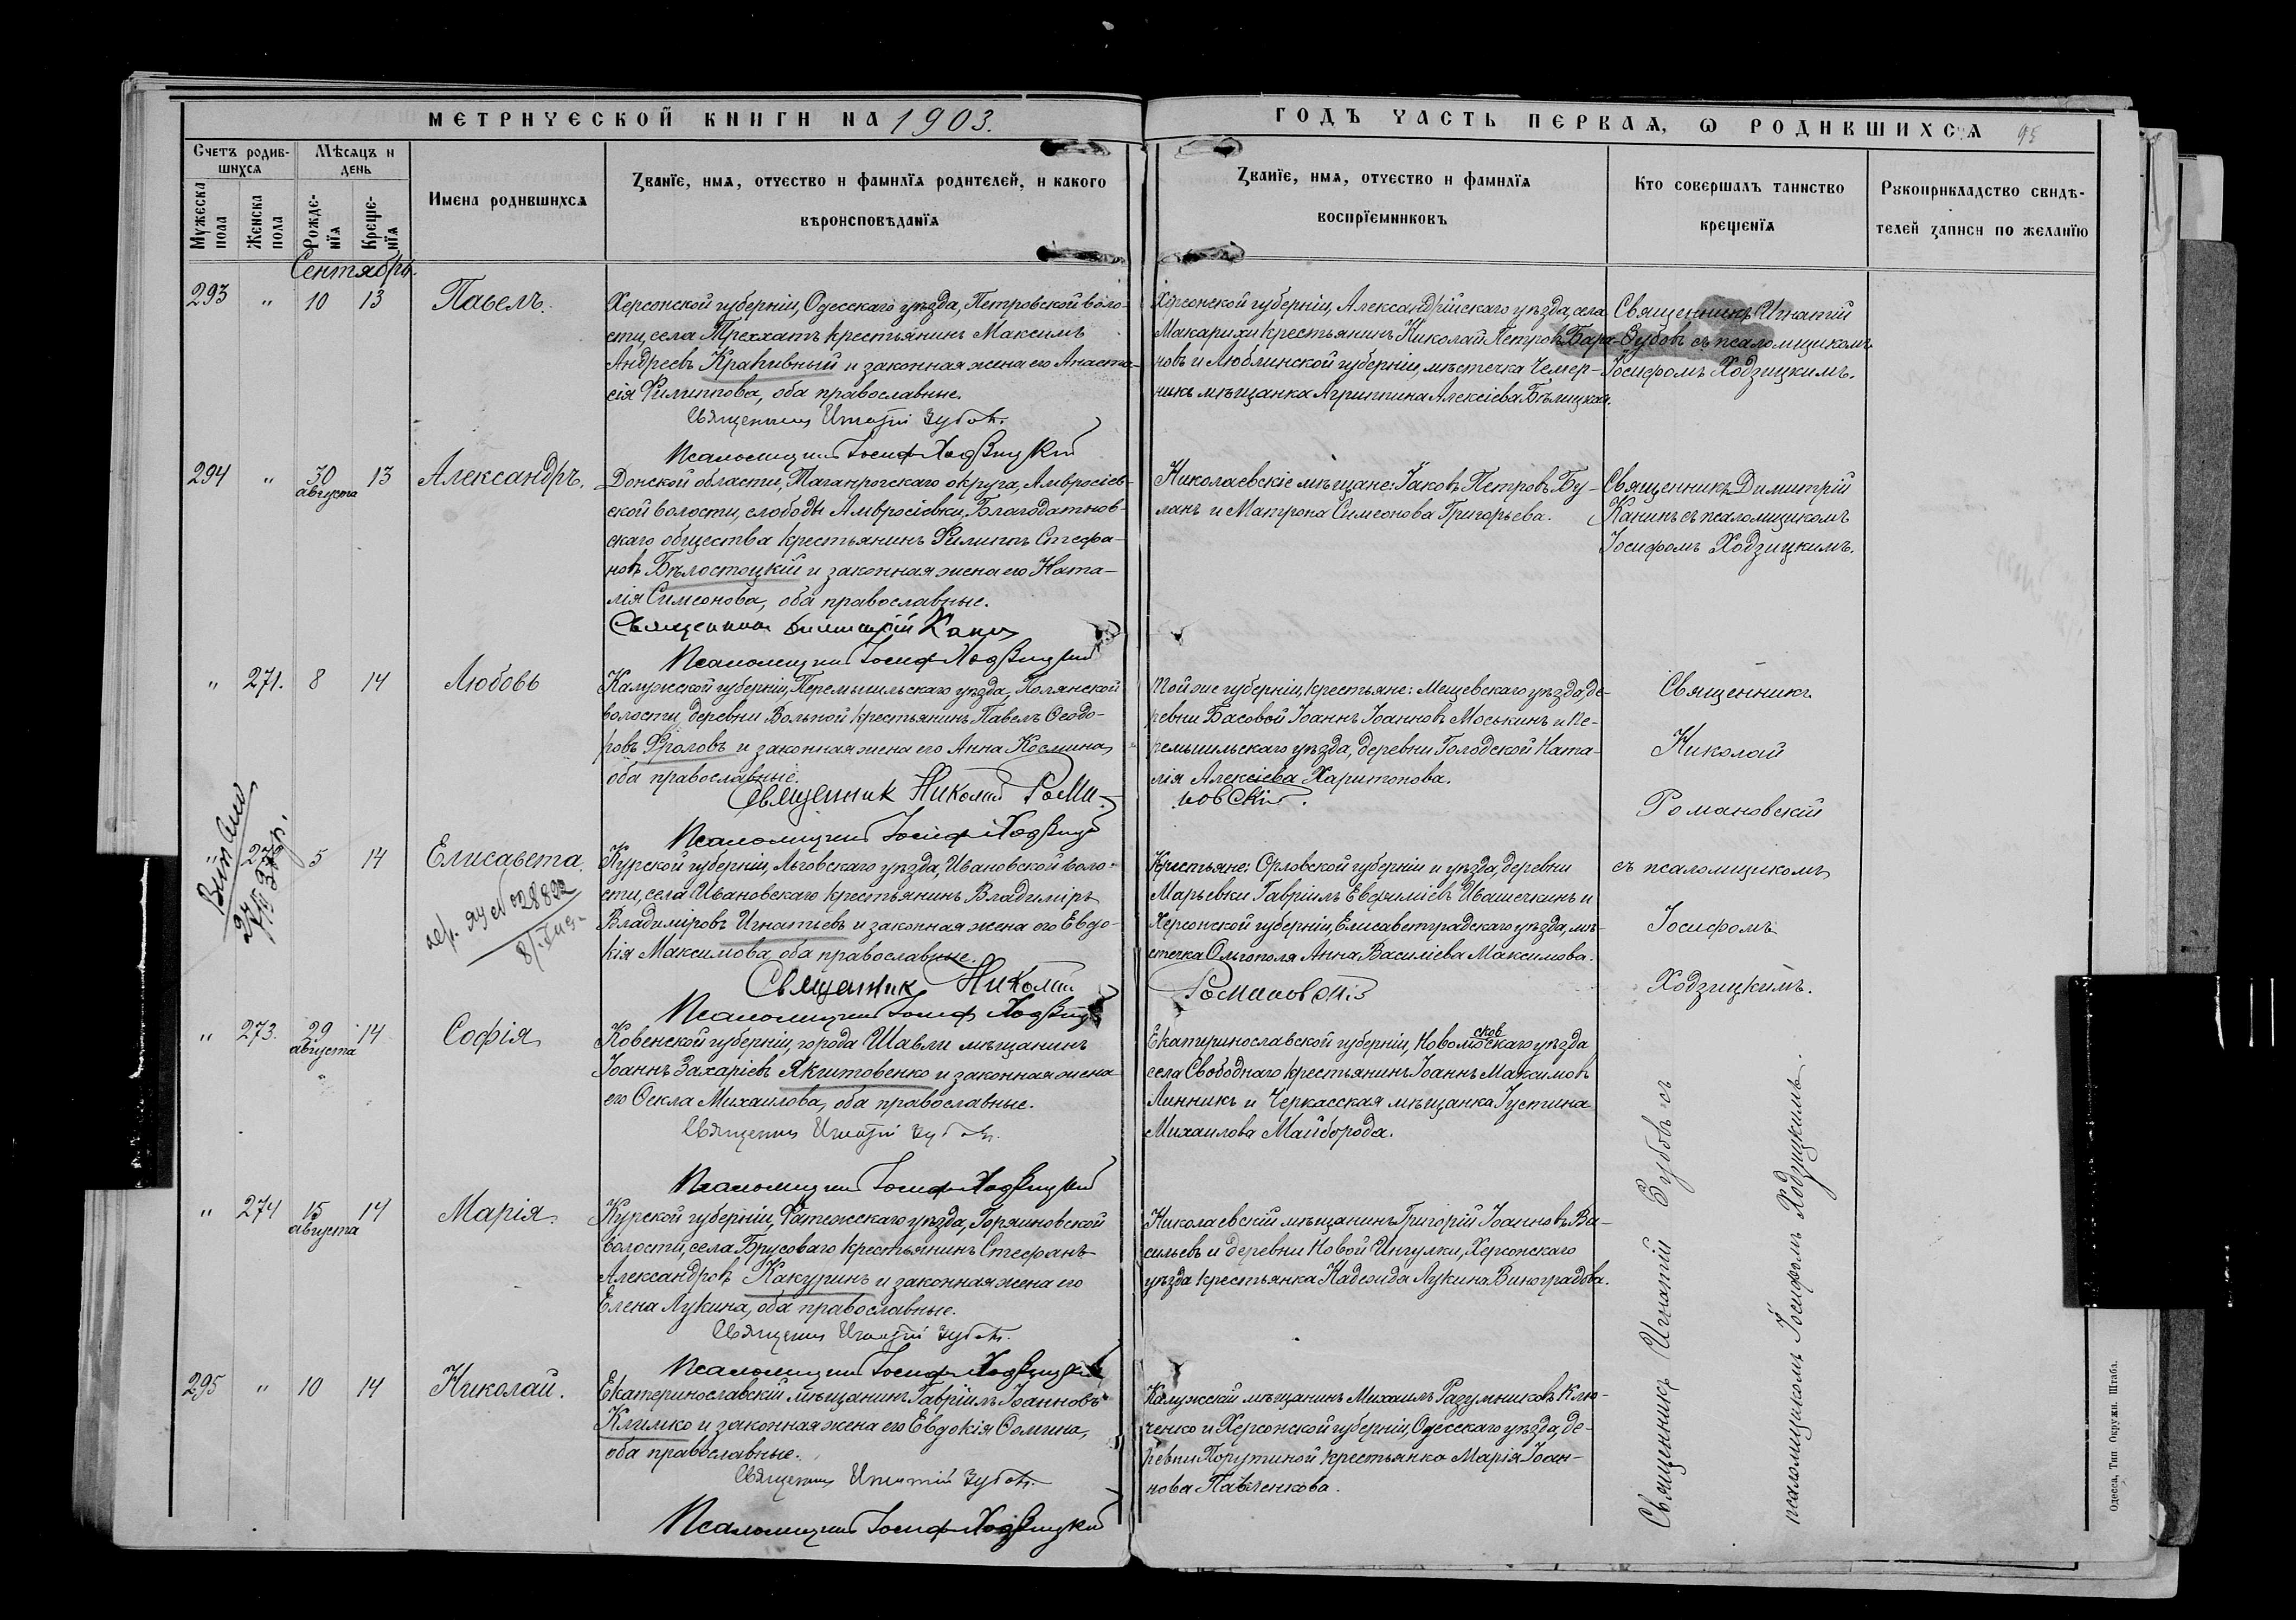 МЕТРИЧЕСКОЙ КНИГИ НА 1903.
Счетъ родив-
шихся
Мѣсяцъ и
день
Мужеска
пола
Женска
пола
Рожде-
нія
Креще-
нія
Имена родившихся
Званіе, имя, отчество и фамилія родителей, и какого
вѣроисповѣданія
Сентябрь.
293 " 10 13 Павелъ.
Херсонской губерніи, Одесскаго уѣзда, Петровской воло-
сти, села Треххатъ крестьянинъ Максимъ
Андреевъ Крапивный и законная жена его Анаста-
сія Филиппова, оба православные.
Священникъ Игнатій Зубовъ.
Псаломщикъ Іосифъ Ходзицкій
294 " 30 августа 13 Александръ.
Донской области, Таганрогскаго округа, Амвросіев-
ской волости, слободы Амвросіевки, Благодатнов-
скаго общества крестьянинъ Филиппъ Стефа-
новъ Бѣлостоцкій и законная жена его Ната-
лія Симеонова, оба православные.
Священникъ Димитрій Канинъ
Псаломщикъ Іосифъ Ходзицкій
" 271. 8 14 Любовь
Калужской губерніи, Перемышльскаго уѣзда, Полянской
волости, деревни Вольной крестьянинъ Павелъ Ѳеодо-
ровъ Фроловъ и законная жена его Анна Космина,
оба православные.
Священник Николай Рома-
Псаломщикъ Іосифъ Ходзицкій
" 5 14 Елисавета.
Курской губерніи, Льговскаго уѣзда, Ивановской воло-
сти, села Ивановскаго крестьянинъ Владиміръ
Владиміровъ Игнатьевъ и законная жена его Евдо-
кія Максимова, оба православные.
Священник Николай
Псаломщикъ Іосифъ Ходзицкій
" 273. 29 августа 14 Софія
Ковенской губерніи, города Шавли мѣщанинъ
Іоаннъ Захаріевъ Якитовенко и законная жена
его Ѳекла Михаилова, оба православные.
Священникъ Игнатій Зубовъ.
Псаломщикъ Іосифъ Ходзицкій
" 274 15 августа 14 Марія.
Курской губерніи, Фатежскаго уѣзда, Горяиновской
волости, села Брусоваго крестьянинъ Стефанъ
Александровъ Какуринъ и законная жена его
Елена Лукина, оба православные.
Священникъ Игнатій Зубовъ.
Псаломщикъ Іосифъ Ходзицкій
295 " 10 14 Николай.
Екатеринославскій мѣщанинъ Гавріилъ Іоанновъ
Климко и законная жена его Евдокія Ѳомина,
оба православные.
Священникъ Игнатій Зубовъ.
Псаломщикъ Іосифъ Ходзицкій
ГОДЪ ЧАСТЬ ПЕРВАЯ, О РОДИВШИХСЯ
Званіе, имя, отчество и фамилія
воспріемниковъ
Кто совершалъ таинство
крещенія
Рукоприкладство свидѣ-
телей записи по желанію
Херсонской губерніи, Александрійскаго уѣзда, села
Макарихи крестьянинъ Николай Петровъ Бара-
новъ и Люблинской губерніи, мѣстечка Чемер-
никъ мѣщанка Агриппина Алексіева Бѣлицкая.
Священникъ Игнатій
Зубовъ съ псаломщикомъ
Іосифомъ Ходзицкимъ.
Николаевскіе мѣщане: Іаковъ Петровъ Бу-
ланъ и Матрона Симеонова Григорьева.
Священникъ Димитрій
Канинъ съ псаломщикомъ
Іосифомъ Ходзицкимъ.
Той же губерніи, крестьяне: Мещевскаго уѣзда, де-
ревни Басовой Іоаннъ Іоанновъ Моськинъ и Пе-
ремышльскаго уѣзда, деревни Голодской Ната-
лія Алексіева Харитонова.
новскій.
Священникъ
Николай
Романовскій
съ псаломщикомъ
Іосифомъ
Ходзицкимъ.
Крестьяне: Орловской губерніи и уѣзда, деревни
Марьевки Гавріилъ Евфиміевъ Ивашечкинъ и
Херсонской губерніи, Елисаветградскаго уѣзда, мѣ-
стечка Ольгополя Анна Василіева Максимова.
Романовскій
Екатеринославской губерніи, Новомосковскаго уѣзда
села Свободнаго крестьянинъ Іоаннъ Максимовъ
Линникъ и Черкасская мѣщанка Іустина
Михаилова Майборода.
Николаевскій мѣщанинъ Григорій Іоанновъ Ва-
сильевъ и деревни Новой Ингулки, Херсонскаго
уѣзда крестьянка Надежда Лукина Виноградова.
Калужскій мѣщанинъ Михаилъ Разумниковъ Клю-
ченко и Херсонской губерніи, Одесскаго уѣзда, де-
ревни Порутиной крестьянка Марія Іоан-
нова Павленкова.
Священникъ Игнатій Зубовъ съ
псаломщикомъ Іосифомъ Ходзицкимъ.
Одесса, Тип Окружн. Штаба.